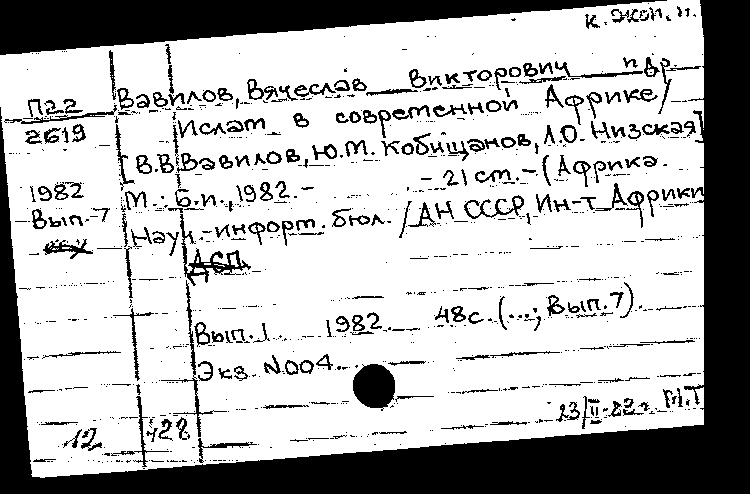 К. Экон. н.
П22 Вавилов, Вячеслав Викторович и др.
2619 Ислам в современной Африке/
[В.В. Вавилов, Ю.М. Кобищанов, Л.О. Низская]
1982 М.: Б.и., 1982.- - 21 см. - (Африка.
Вып.7 Науч.-информ. бюл. / АН СССР, Ин-т Африки
ДСП
Вып.1 1982. 48с. (...; Вып.7).
Экз. N004.
23/II-82г. М.Т
12 428